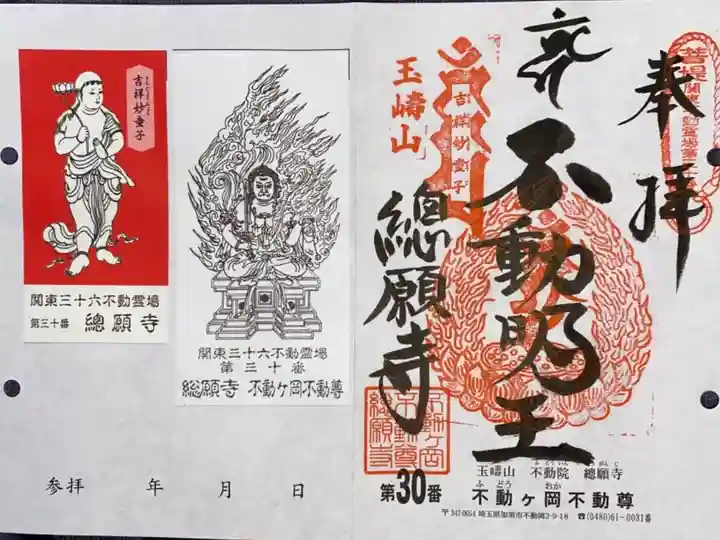 奉拝
不動明王
總願寺
玉嶹山
吉祥妙童子
菩提
第30番
不動ヶ岡
不動尊
總願寺
玉嶹山 不動院 總願寺
不動ヶ岡不動尊
〒347-0054 埼玉県加須市不動岡2-9-18 ☎(0480)61-0031番
吉祥妙童子
関東三十六不動霊場
第三十番 總願寺
関東三十六不動霊場
第三十番
総願寺 不動ヶ岡不動尊
参拝 年 月 日